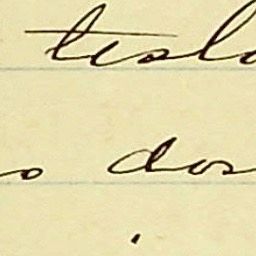 tesla
o dos